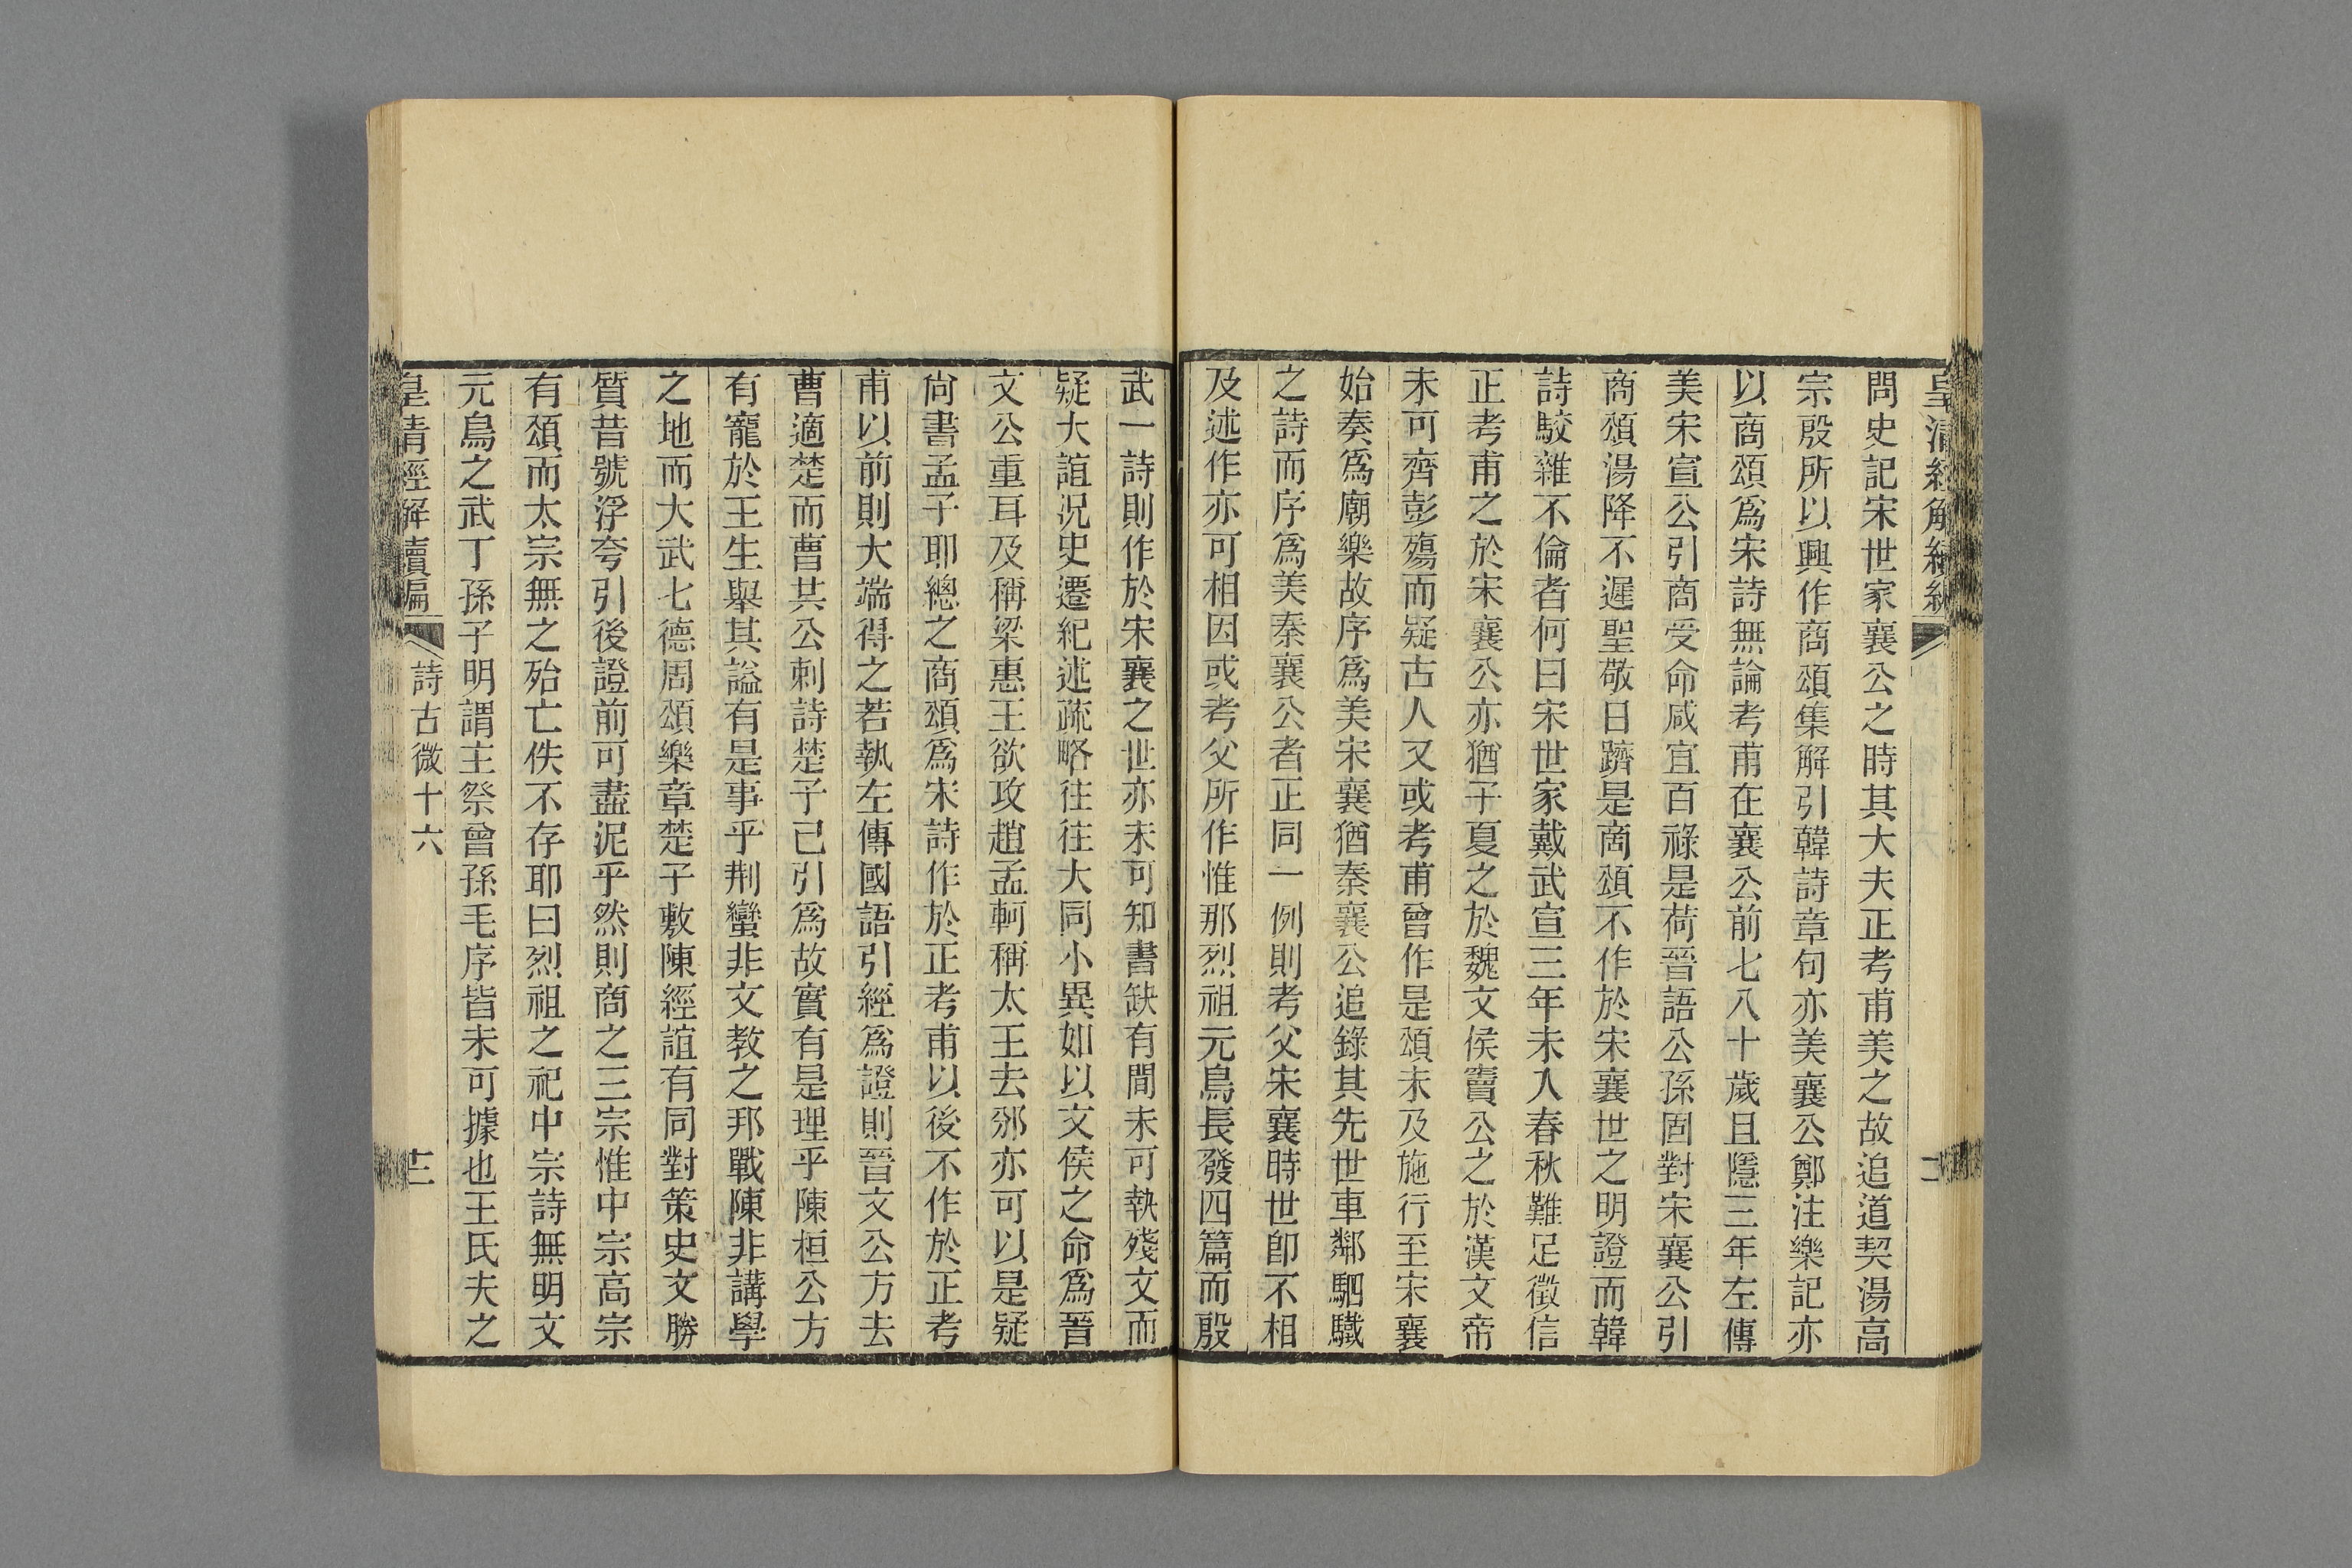 皇清經解續編
二
問史記宋世家襄公之時其大夫正考甫美之故追道契湯高
宗殷所以興作商頌集解引韓詩章句亦美襄公鄭注樂記亦
以商頌爲宋詩無論考甫在襄公前七八十歲且隱三年左傳
美宋宣公引商受命咸宜百祿是荷晉語公孫固對宋襄公引
商頌湯降不遲聖敬日躋是商頌不作於宋襄世之明證而韓
詩駮雜不倫者何曰宋世家戴武宣三年未入春秋難足徵信
正考甫之於宋襄公亦猶子夏之於魏文侯竇公之於漢文帝
未可齊彭殤而疑古人又或考甫曾作是頌未及施行至宋襄
始奏爲廟樂故序爲美宋襄猶秦襄公追錄其先世車鄰駟驖
之詩而序爲美秦襄公者正同一例則考父宋襄時世卽不相
及述作亦可相因或考父所作惟那烈祖元鳥長發四篇而殷
武一詩則作於宋襄之世亦未可知書缺有間未可執殘文而
疑大誼況史遷紀述疏略往往大同小異如以文侯之命爲晉
文公重耳及稱梁惠王欲攻趙孟軻稱太王去邠亦可以是疑
尙書孟子耶總之商頌爲宋詩作於正考甫以後不作於正考
甫以前則大端得之若執左傳國語引經爲證則晉文公方去
曹適楚而曹共公刺詩楚子已引爲故實有是理乎陳桓公方
有寵於王生舉其謚有是事乎荆蠻非文教之邦戰陳非講學
之地而大武七德周頌樂章楚子敷陳經誼有同對策史文勝
質昔號浮夸引後證前可盡泥乎然則商之三宗惟中宗高宗
有頌而太宗無之殆亡佚不存耶曰烈祖之祀中宗詩無明文
元鳥之武丁孫子明謂主祭曾孫毛序皆未可據也王氏夫之
皇清經解續編
詩古微十六